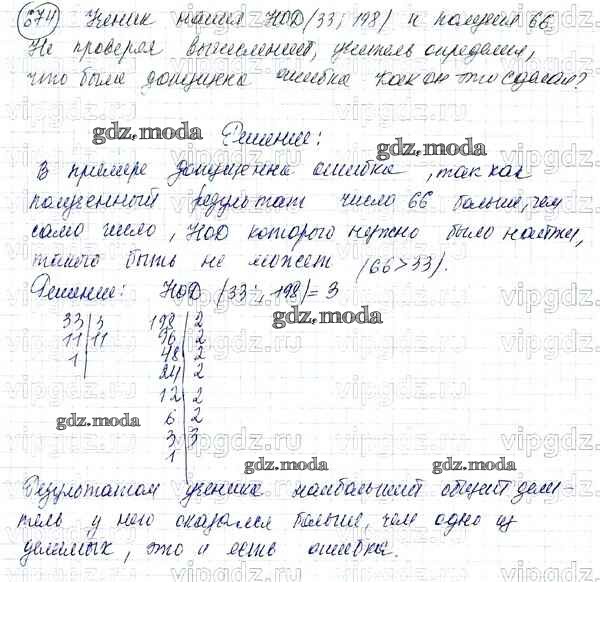 674 Ученик нашел НОД (33; 198) и получил 66.
Не проверяя вычислений, учитель определил,
что была допущена ошибка. Как он это сделал?
gdz.moda Решение: gdz.moda
В примере допущена ошибка, так как
полученный результат число 66 больше, чем
само число, НОД которого нужно было найти,
такого быть не может (66>33).
Решение: НОД (33; 198) = 3
gdz.moda
33 | 3 198 | 2
11 | 11 96 | 2
1 | 48 | 2
24 | 2
12 | 2
gdz.moda 6 | 2
3 | 3
1 |
gdz.moda gdz.moda
Результатом ученика наибольший общий дели-
тель у него оказался больше, чем одно из
делимых, это и есть ошибка.
vipgdz.ru